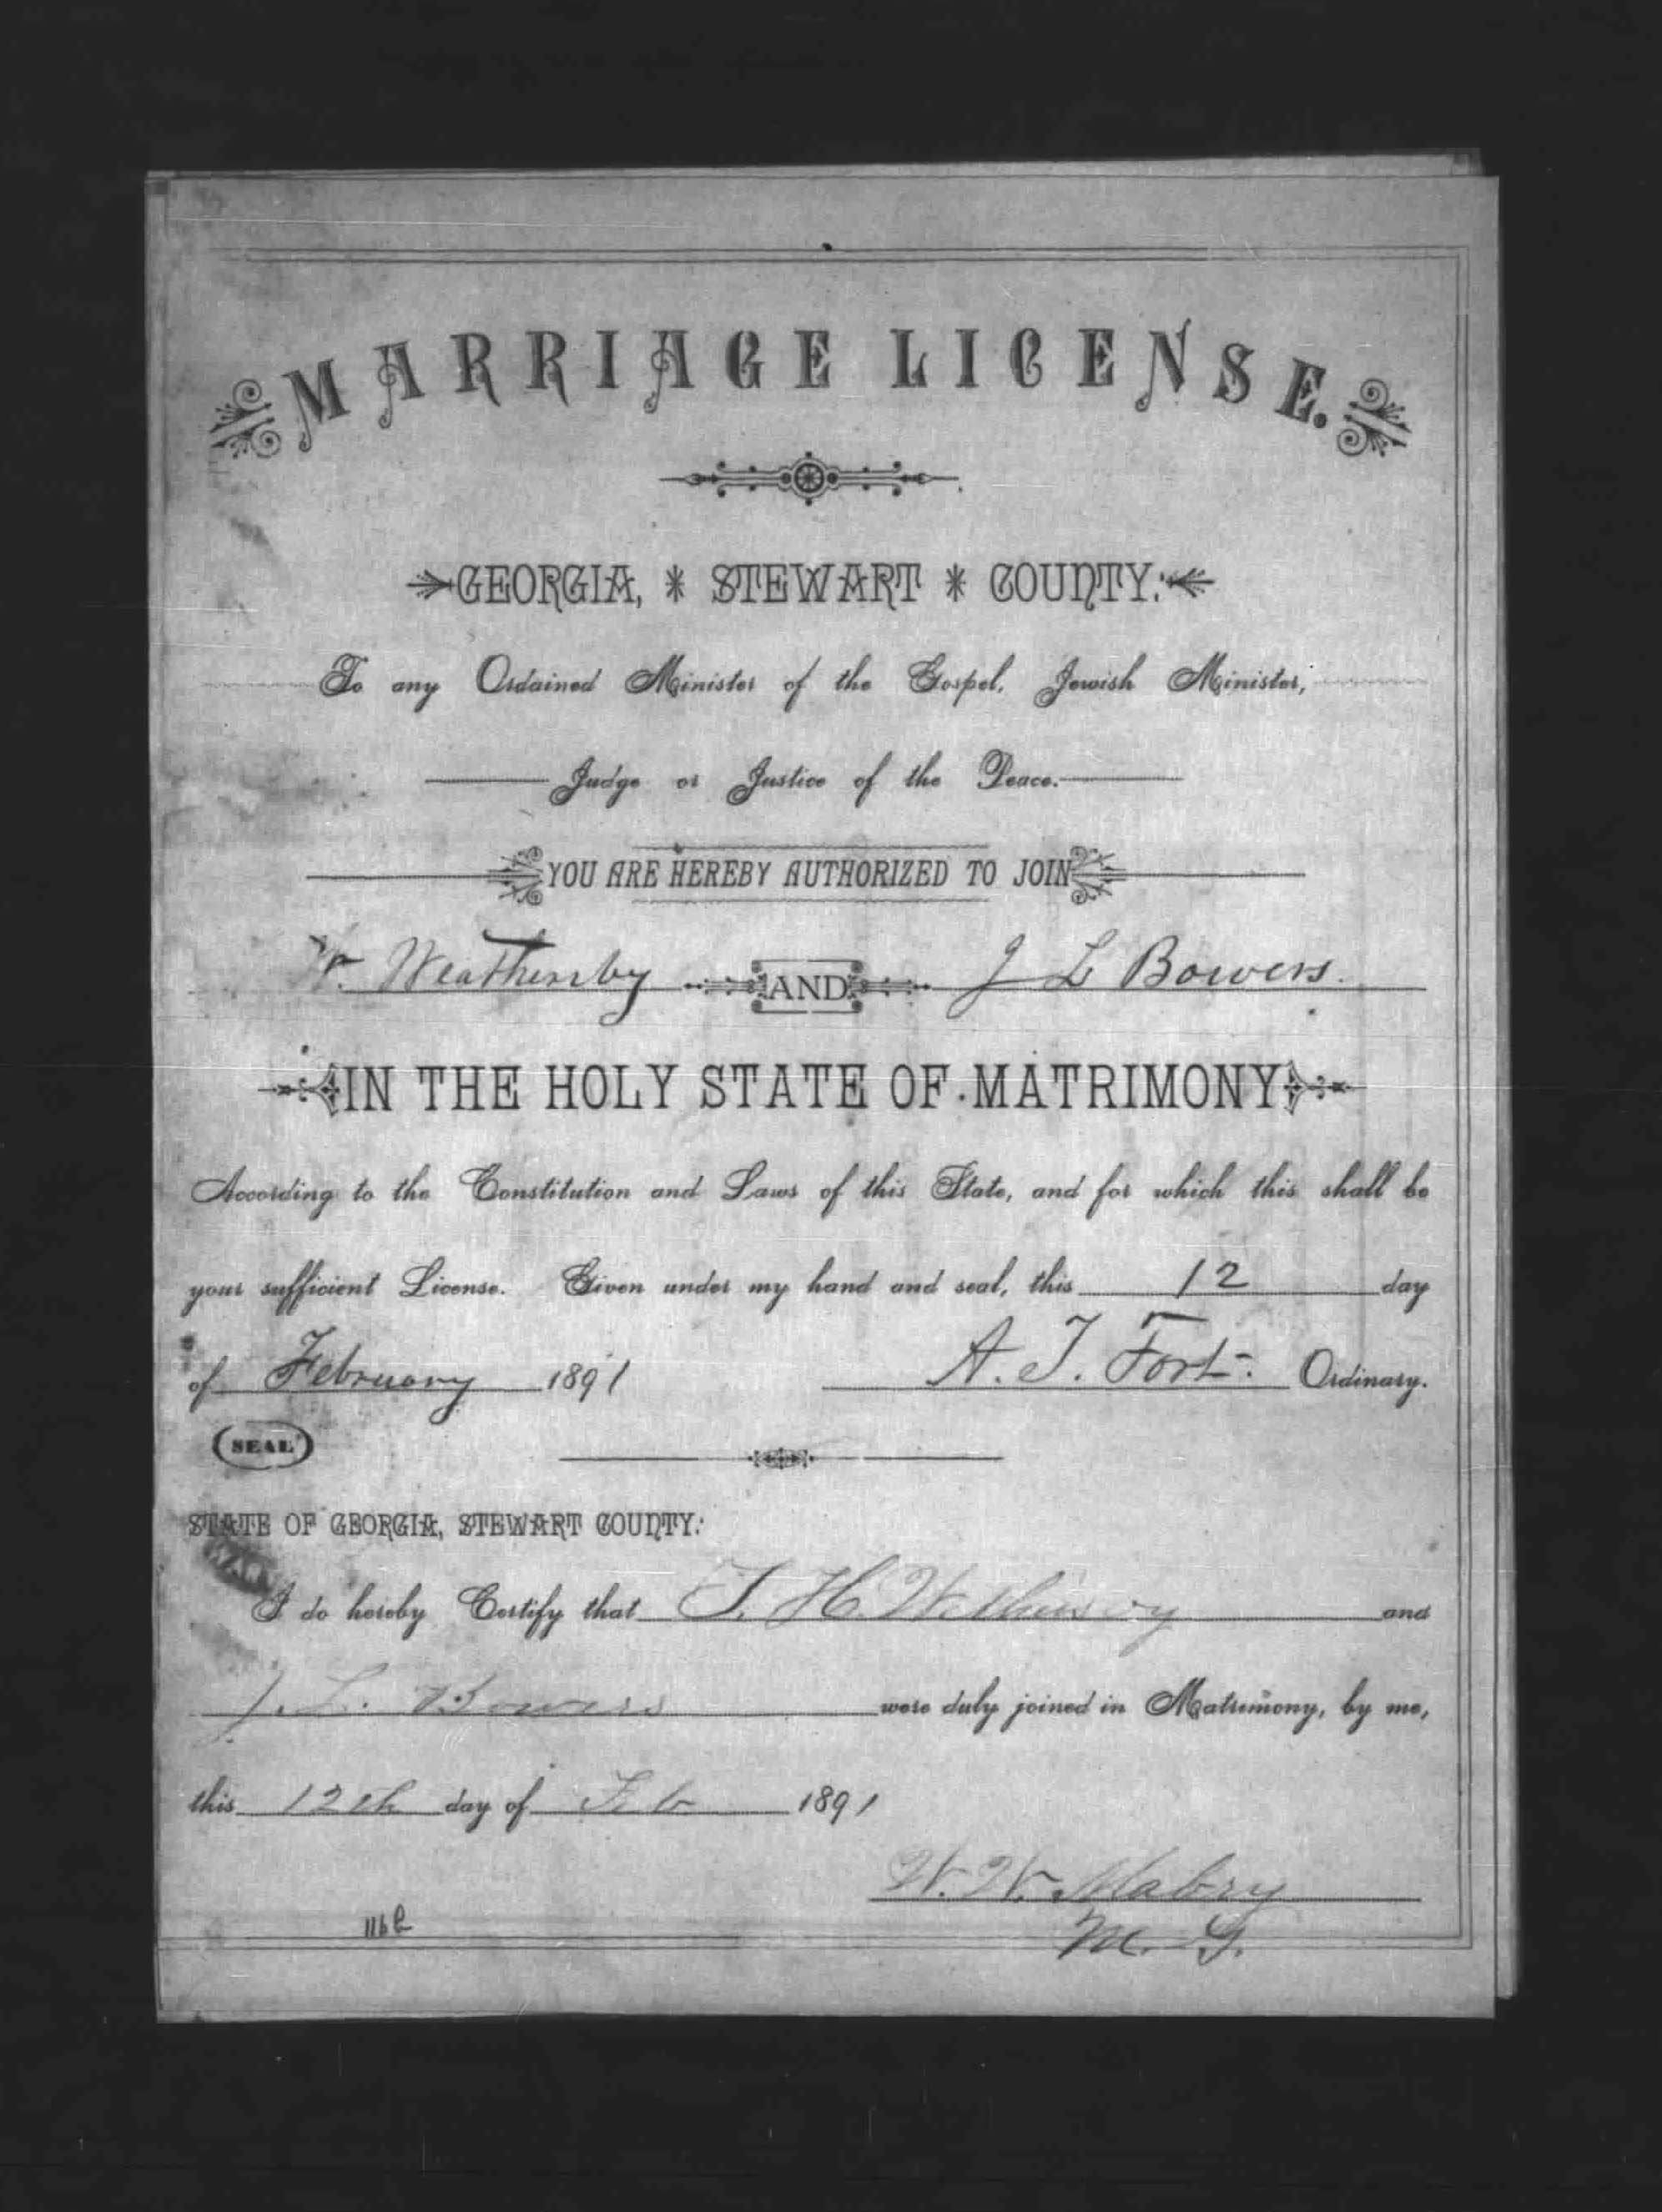 MARRIAGE LICENSE.
GEORGIA, * STEWART * COUNTY:
To any Ordained Minister of the Gospel, Jewish Minister,
Judge or Justice of the Peace.
YOU ARE HEREBY AUTHORIZED TO JOIN
W. Weathersby AND J L Bowers.
IN THE HOLY STATE OF MATRIMONY
According to the Constitution and Laws of this State, and for which this shall be
your sufficient License. Given under my hand and seal, this 12 day
of February 1891 A. T. Fort. Ordinary.
(SEAL)
STATE OF GEORGIA, STEWART COUNTY:
I do hereby Certify that T. H. and
J. L. Bowers were duly joined in Matrimony, by me,
this 12th day of Feb 1891
W. W. Mabry
M. G.